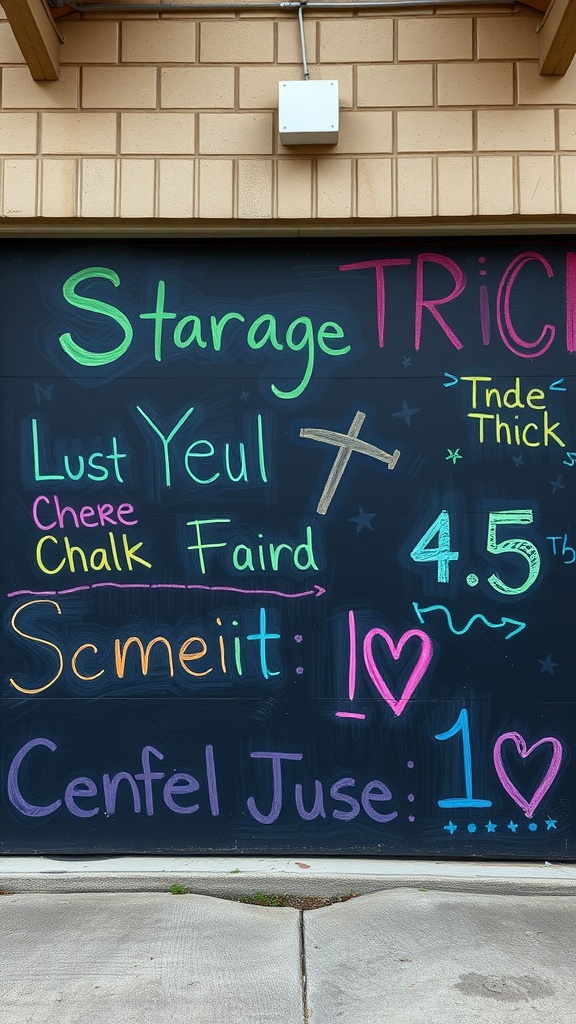 Starage TRiC
Tnde
Thick
Lust Yeul
Chere
Chalk Faird
4.5 Tb
Scmeiit: 1♡
Cenfel Juse: 1♡